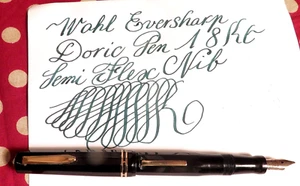 ~Wahl Eversharp
Doric Pen 18Kt
Semi Flex Nib